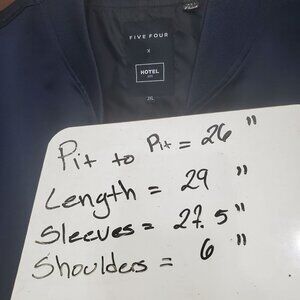 FIVE FOUR
X
HOTEL
2XL
Pit to Pit = 26 "
Length = 29 "
Sleeves = 27.5"
Shoulders = 6 "